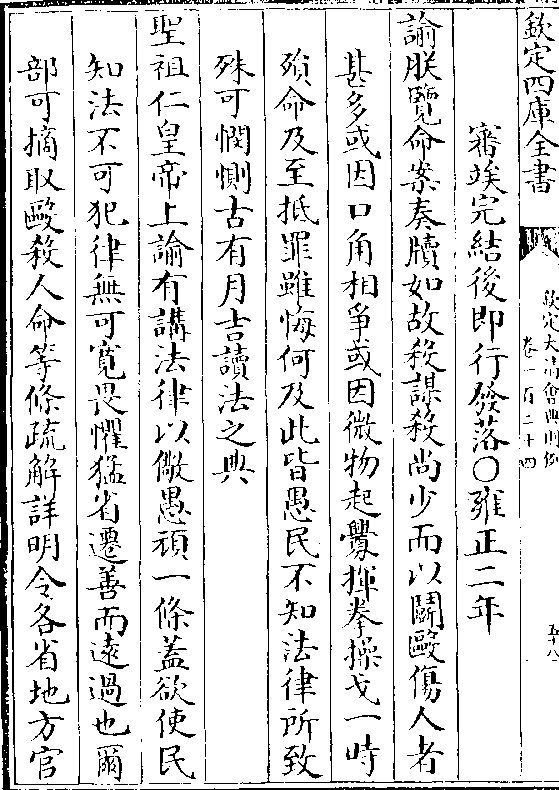 欽定四庫全書
欽定大清會典則例
卷一百二十四
五十八
審竢完結後即行發落○雍正二年
諭朕覽命案奏牘如故殺謀殺尚少而以鬭毆傷人者
甚多或因口角相爭或因微物起釁揮拳操戈一時
殞命及至抵罪雖悔何及此皆愚民不知法律所致
殊可憫惻古有月吉讀法之典
聖祖仁皇帝上諭有講法律以儆愚頑一條蓋欲使民
知法不可犯律無可寛畏懼猛省遷善而逺過也爾
部可摘取毆殺人命等條疏解詳明令各省地方官